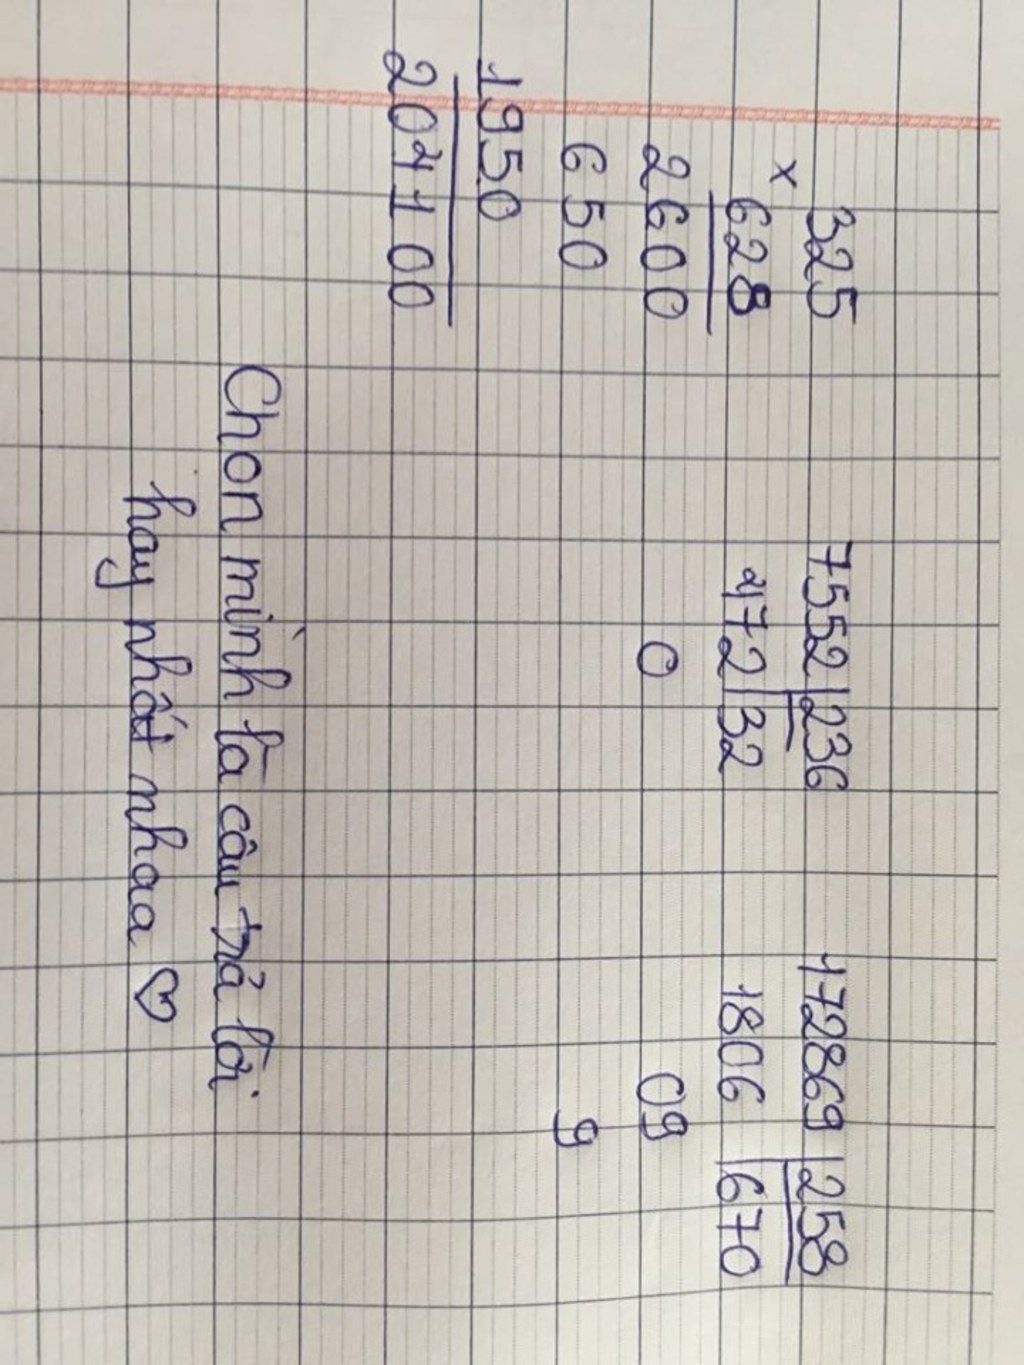 325
x 628
2600
650
1950
204100
7552 | 236
472 | 32
0
172869 | 258
1806 | 670
09
9
Chon mình là câu trả lời
hay nhất nhaa ♡